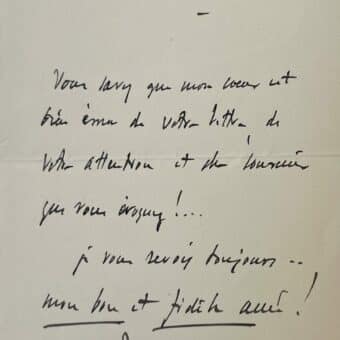 Vous savez que mon coeur est
bien ému de votre lettre, de
votre attention et du souvenir
que vous évoquez !...
je vous revois toujours ..
mon bon et fidèle ami !